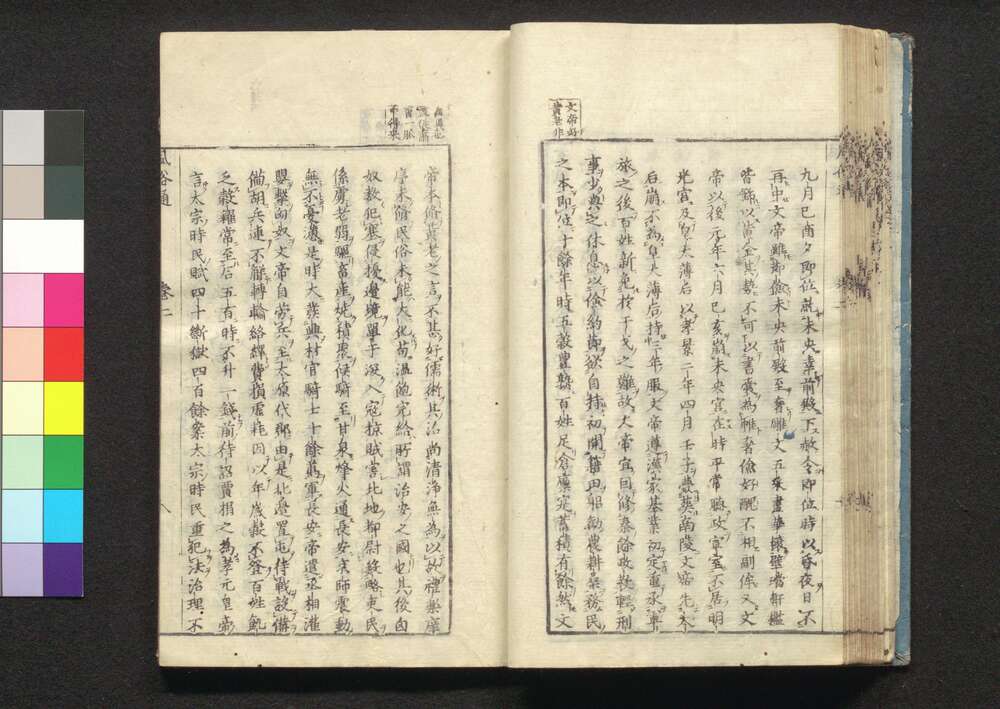 文帝好
實甚非
九月己酉夕即位就未央幸前殿下赦令即位時以昏夜日不
再中文帝雖節儉未央前殿至奢雕文五采畫華榱壁璫軒檻
皆飾以黃金其勢不可以書囊為帷奢儉好醜不相副侔又文
帝以後元年六月己亥崩未央宮在時平常聽政宣室不居明
光宮及皇太薄后以孝景二年四月壬子薨葬南陵文帝先太
后崩不為皇太薄后持三年服文帝遵漢家基業初定重承軍
旅之後百姓新免於干戈之難故文帝宜因修秦餘政教輕刑
事少與之休息以儉約節欲自持初開籍田躬勸農耕桑務民
之本即位十餘年時五穀豐熟百姓足倉廩實蓄積有餘然文
帝本修黃老之言不甚好儒術其治尚清淨無為以故禮樂庠
序未修民俗未能大化苟溫飽完給所謂治安之國也其後匈
奴數犯塞侵擾邊境單于深入寇掠賊害北地都尉殺略吏民
係虜老弱驅畜產燒積聚候騎至甘泉烽火通長安京師震動
無不憂懣是時大發興材官騎士十餘萬軍長安帝遣丞相灌
嬰擊匈奴文帝自勞兵至太原代郡由是北邊置屯待戰設備
備胡兵連不解轉輸絡繹費損虛耗因以年歲穀不登百姓飢
乏穀糴常至石五百時不升一錢前待詔賈捐之為孝元皇帝
言太宗時民賦四十斷獄四百餘案太宗時民重犯法治理不
風俗通 卷二